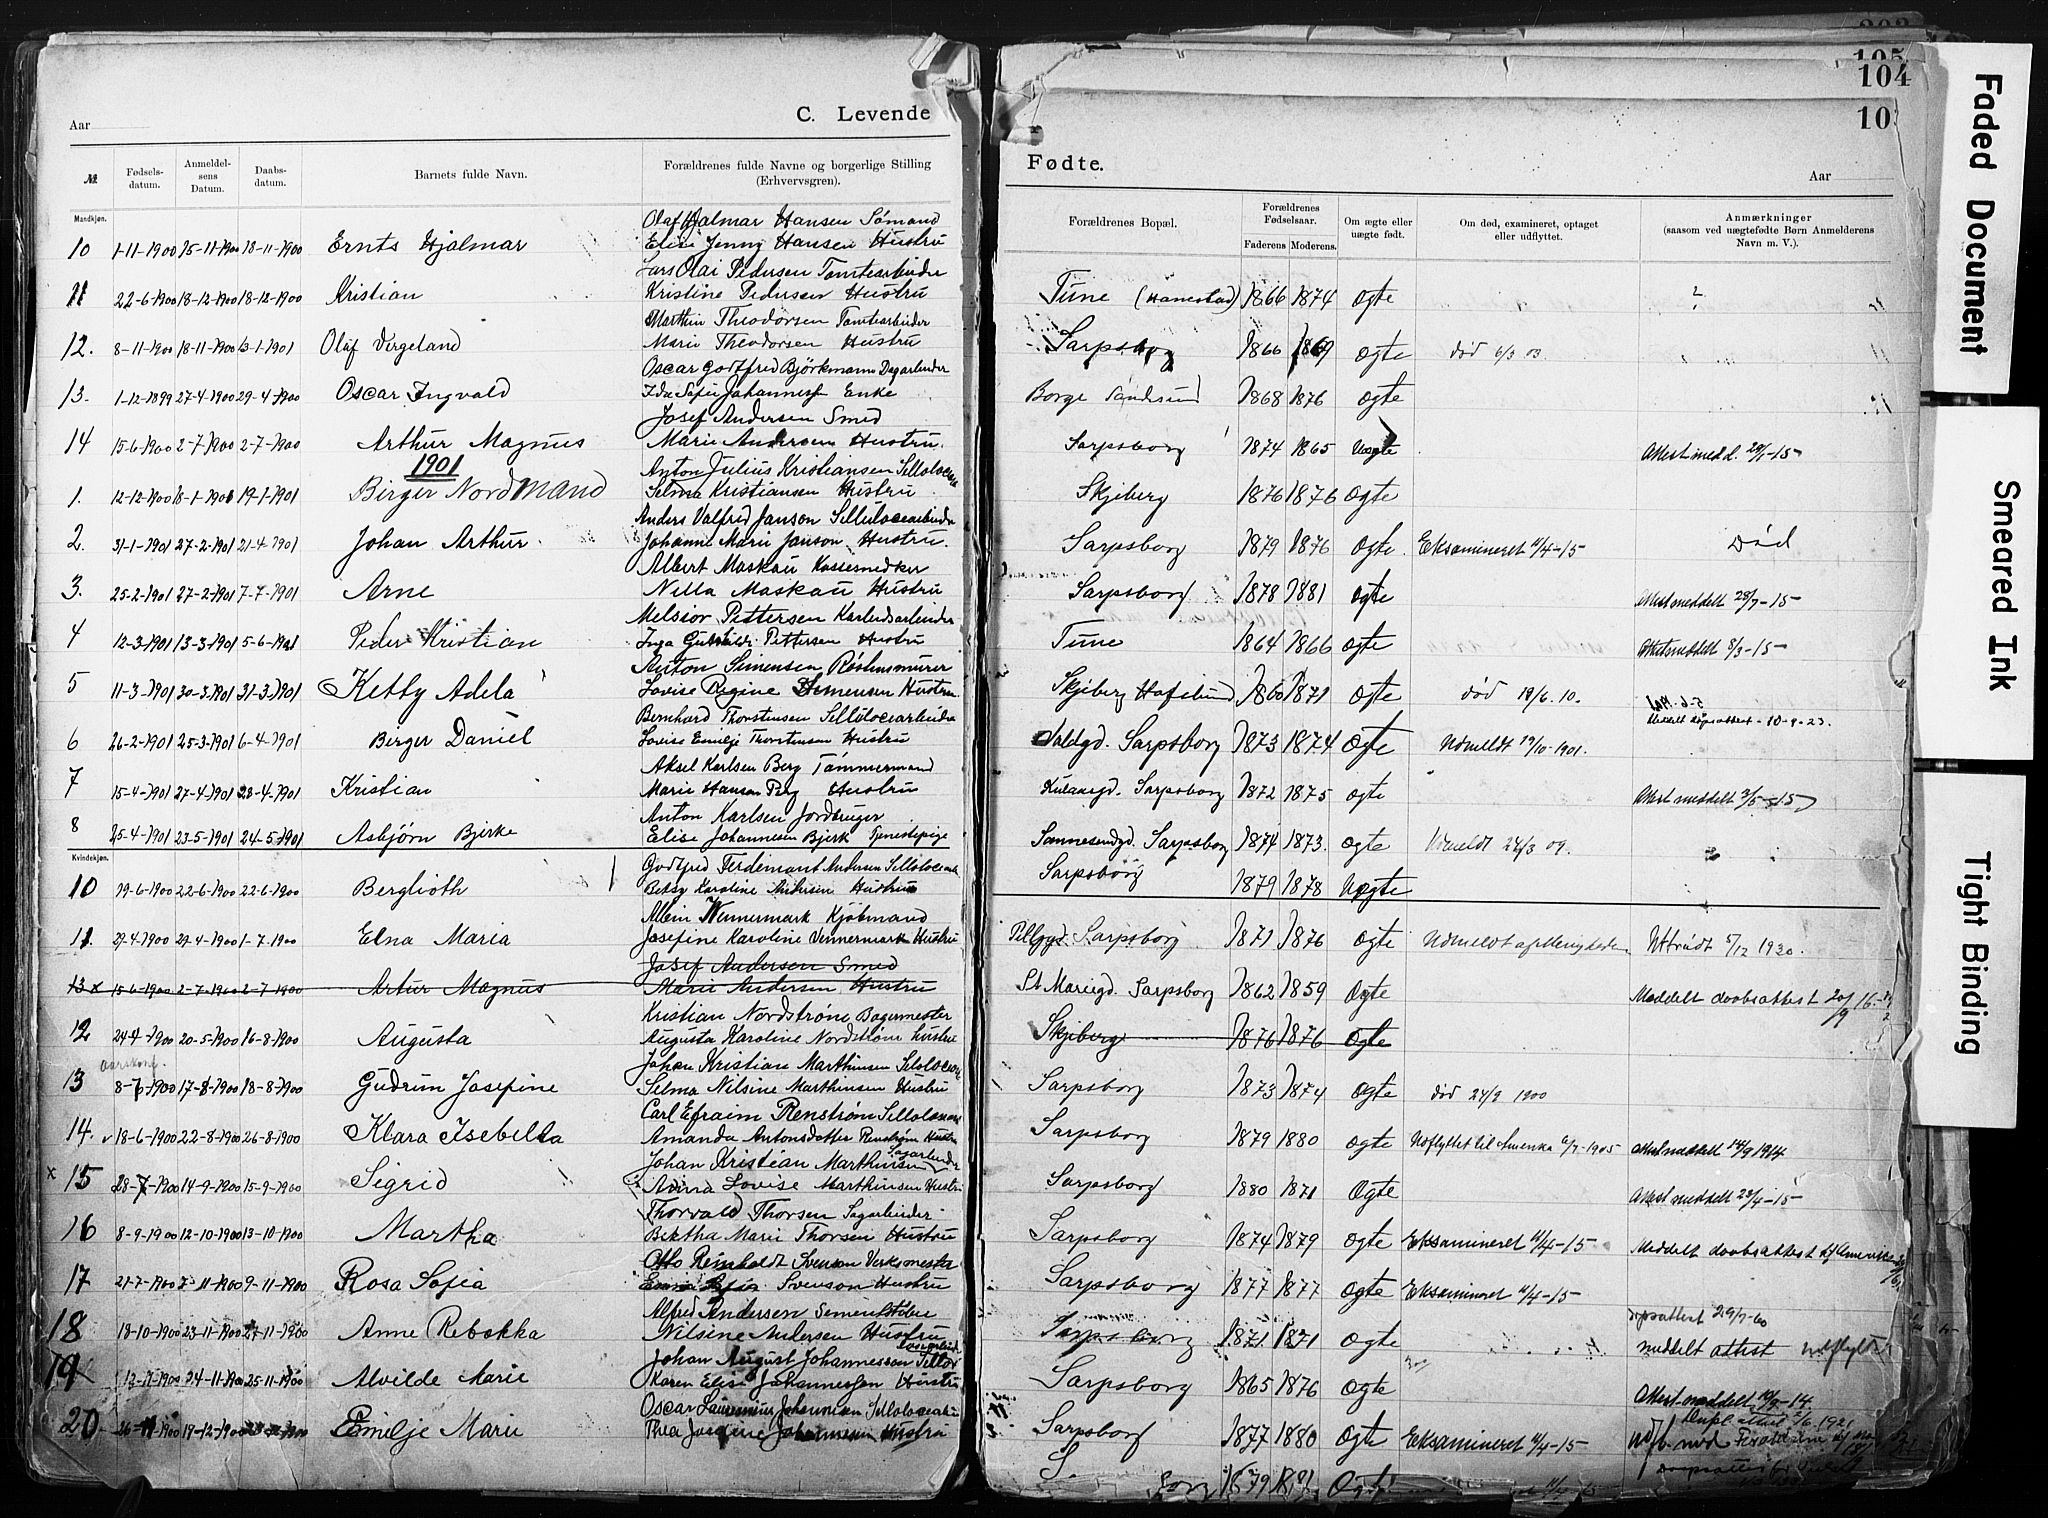 Aar
C. Levende
№
Fødsels-datum.
Anmeldel-sens Datum.
Daabs-datum.
Barnets fulde Navn.
Forældrenes fulde Navne og borgerlige Stilling (Erhvervsgren).
Mandkjøn.
Olaf Hjalmar Hansen Sömand
10 1-11-1900 15-11-1900 18-11-1900 Ernts Hjalmar Elise Jenny Hansen Hustru
Lars Olai Pedersen Tomtearbeider
11 22-6-1900 18-12-1900 18-12-1900 Kristian Kristine Pedersen Hustru
Marthin Theodorsen Tomtearbeider
12. 8-11-1900 18-11-1900 13-1-1901 Olaf Vergeland Marie Theodorsen Hustru
Oscar Godtfred Björkmann Dagarbeider
13. 1-12-1899 27-4-1900 29-4-1900 Oscar Ingvald Ida Sofie Johannessen Enke
Josef Andersen Smed
14 15-6-1900 2-7-1900 2-7-1900 Arthur Magnus Marie Andersen Hustru.
1901
Anton Julius Kristiansen
1. 12-12-1900 18-1-1901 19-1-1901 Birger Nordmand Selma Kristiansen Hustru
Anders Valfred Janson Sellulocearbeider
2. 31-1-1901 27-2-1901 21-4-1901 Johan Arthur Johanne Marie Janson Hustru.
Albert Maskau Kassesnedker
3. 25-2-1901 27-2-1901 7-7-1901 Arne Nilla Maskau Hustru
Melsior Pettersen
4 12-3-1901 13-3-1901 5-6-1901 Peder Kristian Inga Pettersen Hustru
Anton Simensen
5 11-3-1901 30-3-1901 31-3-1901 Ketty Adela Lovise Regine Simensen Hustru
Bernhard Thorstensen Sellulocearbeider
6 26-2-1901 25-3-1901 6-4-1901 Birger Daniel Lovise Emilje Thorstensen Hustru
Aksel Karlsen Berg Tömmermand
7 15-4-1901 27-4-1901 28-4-1901 Kristian Marie Hansen Berg Hustru
Anton Karlsen Jordbruger
8 25-4-1901 23-5-1901 24-5-1901 Asbjörn Bjerke Elise Johannesen Bjerk Tjenestepige
Kvindekjøn.
Godtfred Ferdemant Andersen
10 19-6-1900 22-6-1900 22-6-1900 Berglioth Betsy Karoline Andersen Hustru
Albin Wennermark Kjöbmand
11. 29-4-1900 29-4-1900 1-7-1900 Elna Maria Josefine Karoline Vennermark Hustru
Josef Andersen Smed
13 x 15-6-1900 2-7-1900 2-7-1900 Artur Magnus Marie Andersen Hustru
Kristian Nordström Bagermester
12 24-4-1900 20-5-1900 16-8-1900 Augusta Augusta Karoline Nordström Hustru
Johan Kristian Marthinsen
13 17-8-1900 18-8-1900 Gudrun Josefine Selma Nilsine Marthinsen Hustru
Carl Efraim Renström
14. 18-6-1900 22-8-1900 26-8-1900 Klara Isebella Amanda Antonsdatter Renström Hustru
Johan Kristian Marthinsen Sagarbeider
x 15 28-7-1900 14-9-1900 15-9-1900 Sigrid Anna Lovise Marthinsen Hustru
Thorvald Thorsen Sagarbeider
16 8-9-1900 12-10-1900 13-10-1900 Martha Bertha Marie Thorsen Hustru
Otto Reinholdt Svenson Verksmester
17 21-7-1900 7-11-1900 9-11-1900 Rosa Sofia Svenson Hustru
Alfred Andersen Sementstöber
18 18-10-1900 23-11-1900 27-11-1900 Anne Rebekka Nilsine Andersen Hustru
Johan August Johannesson
19 24-11-1900 25-11-1900 Alvilde Marie Karen Elise Johannessen Hustru
Oscar Laurentius Johannesen
20 19-12-1900 Emilje Marie Thea Josefine Johannesen Hustru
105
104
10
Fødte.
Aar
Forældrenes Bopæl.
Forældrenes Fødselsaar.
Faderens Moderens.
Om ægte eller uægte født.
Om død, examineret, optaget eller udflyttet.
Anmærkninger (saasom ved uægtefødte Børn Anmelderens Navn m. V.).
Tune (Hanestad) 1866 1874 Ogte
Sarpsborg 1866 1869 Ogte død 6/3 03
Borge Sandesund 1868 1876 Ogte
Sarpsborg 1874 1865 Uogte Attest medd. 29/1-15
Skjeberg 1876 1876 Ogte
Sarpsborg 1879 1876 Ogte. Eksamineret 11/4-15 Död
Sarpsborg 1878 1881 Ogte Attest meddelt 28/7-15
Tune 1864 1866 Ogte meddelt 8/3-15
Skjeberg Hafslund 1860 1871 Ogte död 19/6. 10.
10-9-23.
Sarpsborg 1873 1874 Ogte Udmeldt 19/10-1901.
Sarpsborg 1872 1875 Ogte Attest meddelt 3/5-15
Sannesundgd. Sarpsborg 1874 1873. Ogte Udmeldt 24/3 09.
Sarpsborg 1879 1878 Uogte
Sarpsborg 1871 1876 Ogte Udmeldt af Menigheden Uttrådt 5/12 1920.
St Mariegd. Sarpsborg 1862 1859 Ogte Meddelt doobsattest 20/9 16.
Skjeberg 1876 1876 Ogte
Sarpsborg 1873 1874 Ogte död 24/9 1900
Sarpsborg 1879 1880 Ogte Udflyttet til Amerika 6/7-1905 Attest meddelt 14/9 1914
Sarpsborg 1880 1871 Ogte Attest meddelt 23/4-15
Sarpsborg 1874 1879 Ogte Eksamineret 11/4-15 Meddelt doobsattest
Sarpsborg 1877 1877 Ogte Eksamineret 11/4-15
Sarpsborg 1871 1871 Ogte meddelt attest udflyttet
Sarpsborg 1865 1876 Ogte
Attest meddelt
Sarpsborg 1877 1880 Ogte Eksamineret 11/4-15
1879 Ogte
Faded Document
Smeared Ink
Tight Binding